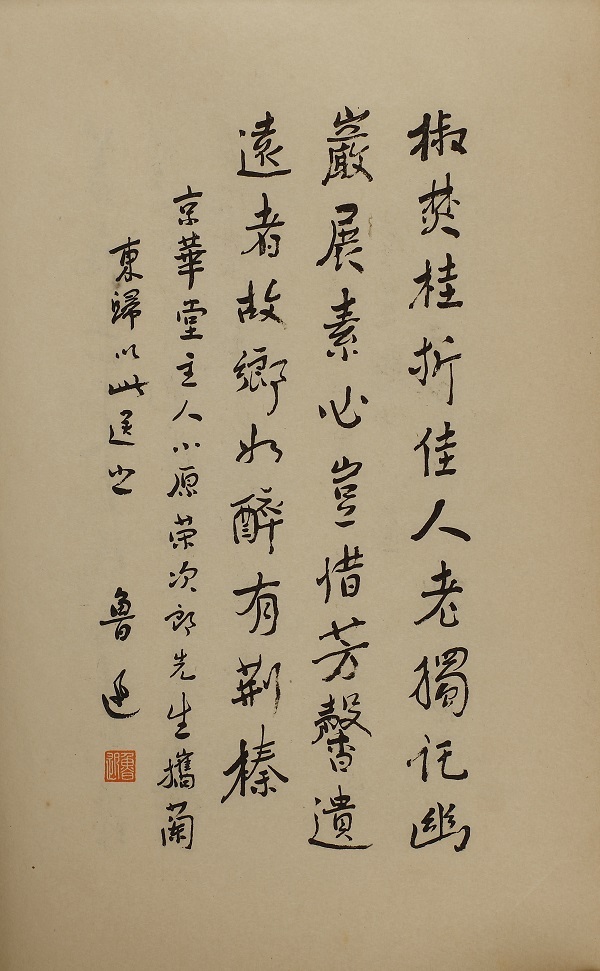 椒焚桂折佳人老獨託幽
巖展素心豈惜芳馨遺
遠者故鄉如醉有荊榛
京華堂主人小原榮次郎先生攜蘭
東歸以此送之 魯迅
魯迅